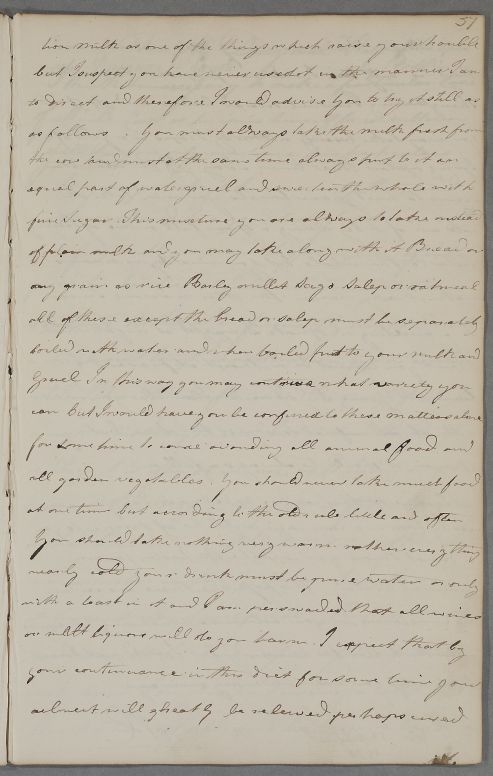 57
tion milk as one of the things which raise your trouble
but I suspect you have never used it in the manner I am
to direct and therefore I would advise you to try it still as
as follows. You must always take the milk fresh from
the cow and must at the same time always put to it an
equal part of water gruel and sweeten the whole with
fine Sugar This mixture you are always to take instead
of plain milk and you may take along with it Bread or
any grain as rice Barley millet Sago Salep or oatmeal
all of these except the bread or salep must be separately
boiled with water and when boiled put to your milk and
Gruel In this way you may contrive what variety you
can But I would have you be confined to these matters alone
for some time to come avoiding all animal food and
all garden vegetables. You should never take much food
at one time but according to the old rule little and often
You should take nothing very warm rather every thing
nearly cold your drink must be pure water or only
with a toast in it and I am perswaded that all wines
or malt liquors will do you harm. I expect that by
your continuance in this diet for some time your
ailment will gheatly be relieved perhaps cured